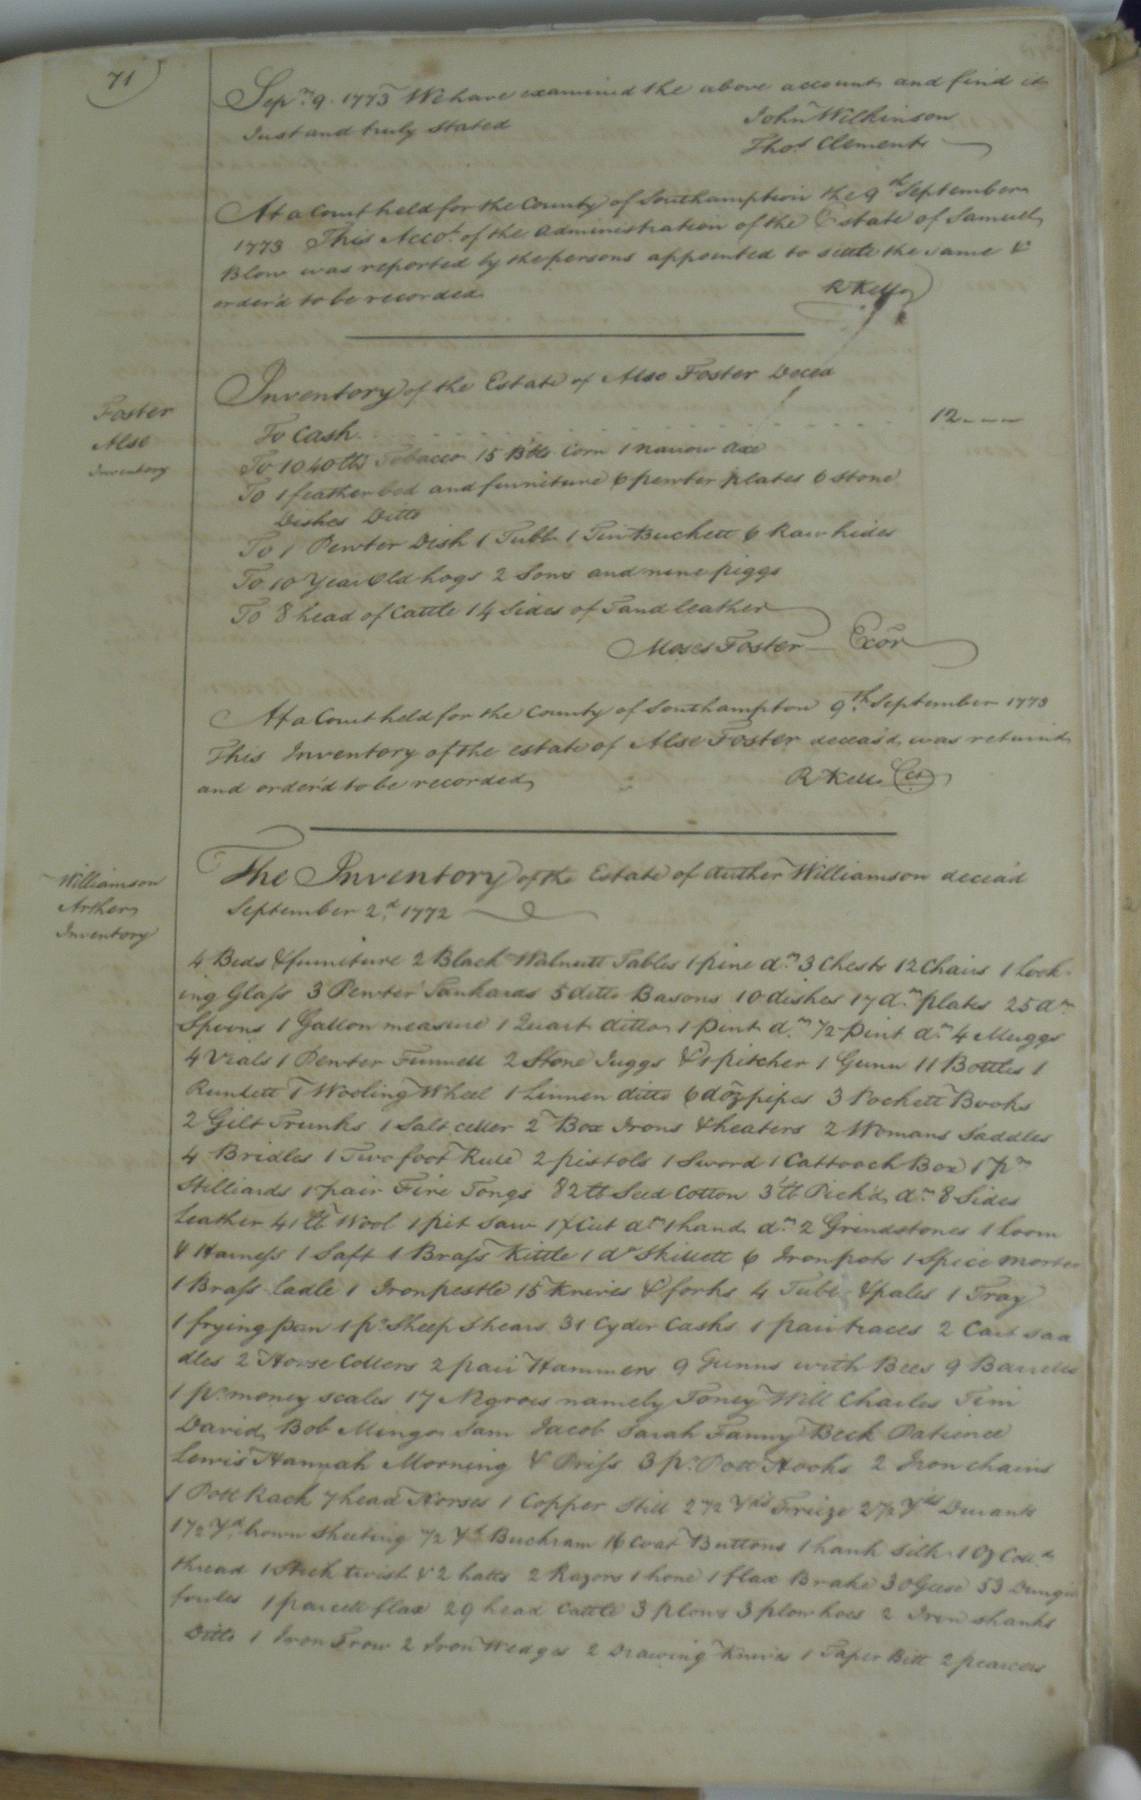 71
Sepr. 9. 1773 We have examined the above account and find it
Just and truly stated
John Wilkinson
Thos. Clements
At a Court held for the County of Southampton the 9th September
1773 This Accot. of the administration of the Estate of Samuel
Blow was reported by the persons appointed to settle the same &
order'd to be recorded
R Kello
Foster
Alse
Inventory
Inventory of the Estate of Alse Foster Decea
To Cash 12
To 1040 lb Tobacco 15 Blls Corn 1 narrow axe
To 1 feather bed and furniture 6 pewter plates 6 stone
Dishes Ditto
To 1 Pewter Dish 1 Tubb 1 Tin Buckett 6 Raw hides
To 10 Year Old hogs 2 Sows and nine piggs
To 8 head of Cattle 14 Sides of Tand leather
Moses Foster Exor
At a Court held for the County of Southampton 9th September 1773
This Inventory of the estate of Alse Foster deceas'd, was return'd
and order'd to be recorded,
R Kello
Williamson
Arther
Inventory
The Inventory of the Estate of Auther Williamson deceas'd
September 2d. 1772
4 Beds & furniture 2 Black Walnutt Tables 1 pine do. 3 Chests 12 Chairs 1 Look
ing Glass 3 Pewter Tankards 5 ditto Basons 10 dishes 17 do. plates 25 do.
Spoons 1 Gallon measure 1 Quart ditto 1 pint do. 1/2 pint do. 4 Muggs
4 Vials 1 Pewter Funnell 2 Stone Juggs & 1 pitcher 1 Gunn 11 Bottles 1
Rundlett 1 Wooling Wheel 1 Linnen ditto 6 doz pipes 3 Pockett Books
2 Gilt Trunks 1 Salt celler 2 Box Irons & heaters 2 Womans Saddles
4 Bridles 1 Two foot Rule 2 pistols 1 Sword 1 Cattooch Box 1 pr.
Stilliards 1 pair Fire Tongs 82 lb Seed Cotton 3 lb Pick'd do. 8 Sides
Leather 41 lb Wool 1 pit saw 1 X Cut do. 1 hand do. 2 Grindstones 1 loom
& Harness 1 Saft 1 Brass Kittle 1 do Skillett 6 Iron pots 1 Spice morter
1 Brass ladle 1 Iron pestle 15 knives & forks 4 Tubs & pales 1 Tray
1 frying pan 1 pr. Sheep Shears 31 Cyder Casks 1 pair traces 2 Cart sad
dles 2 Horse Collers 2 pair Hammers 9 Gunns with Bees 9 Barrells
1 pr. money scales 17 Negroes namely Toney Will Charles Tim
David, Bob Mingo Sam Jacob Sarah Fanny Beck Patience
Lewis Hannah Morning & Priss 3 pr. Pott Hooks 2 Iron chains
1 Pott Rack 7 head Horses 1 Copper Still 2 1/2 Yds Freize 2 1/2 Yds Durants
1 1/2 Yd. brown sheeting 1/2 Yd Buckram 16 Coat Buttons 1 hank silk 1 Oz Colld.
thread 1 Stick twist & 2 hatts 2 Razors 1 hone 1 flax Brake 30 Geese 53 Dungil
fowles 1 parcell flax 29 head Cattle 3 plows 3 plow hoes 2 Iron shanks
Ditto 1 Iron Frow 2 Iron Wedges 2 Drawing Knives 1 Taper Bitt 2 pearcers